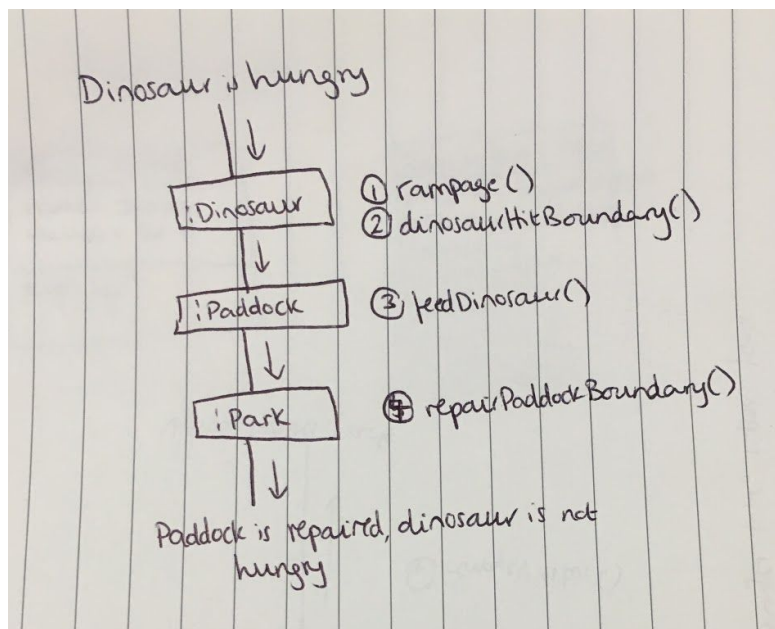 Dinosaur is hungry
:Dinosaur
① rampage()
② dinosaurHitBoundary()
:Paddock
③ feedDinosaur()
:Park
④ repairPaddockBoundary()
Paddock is repaired, dinosaur is not
hungry